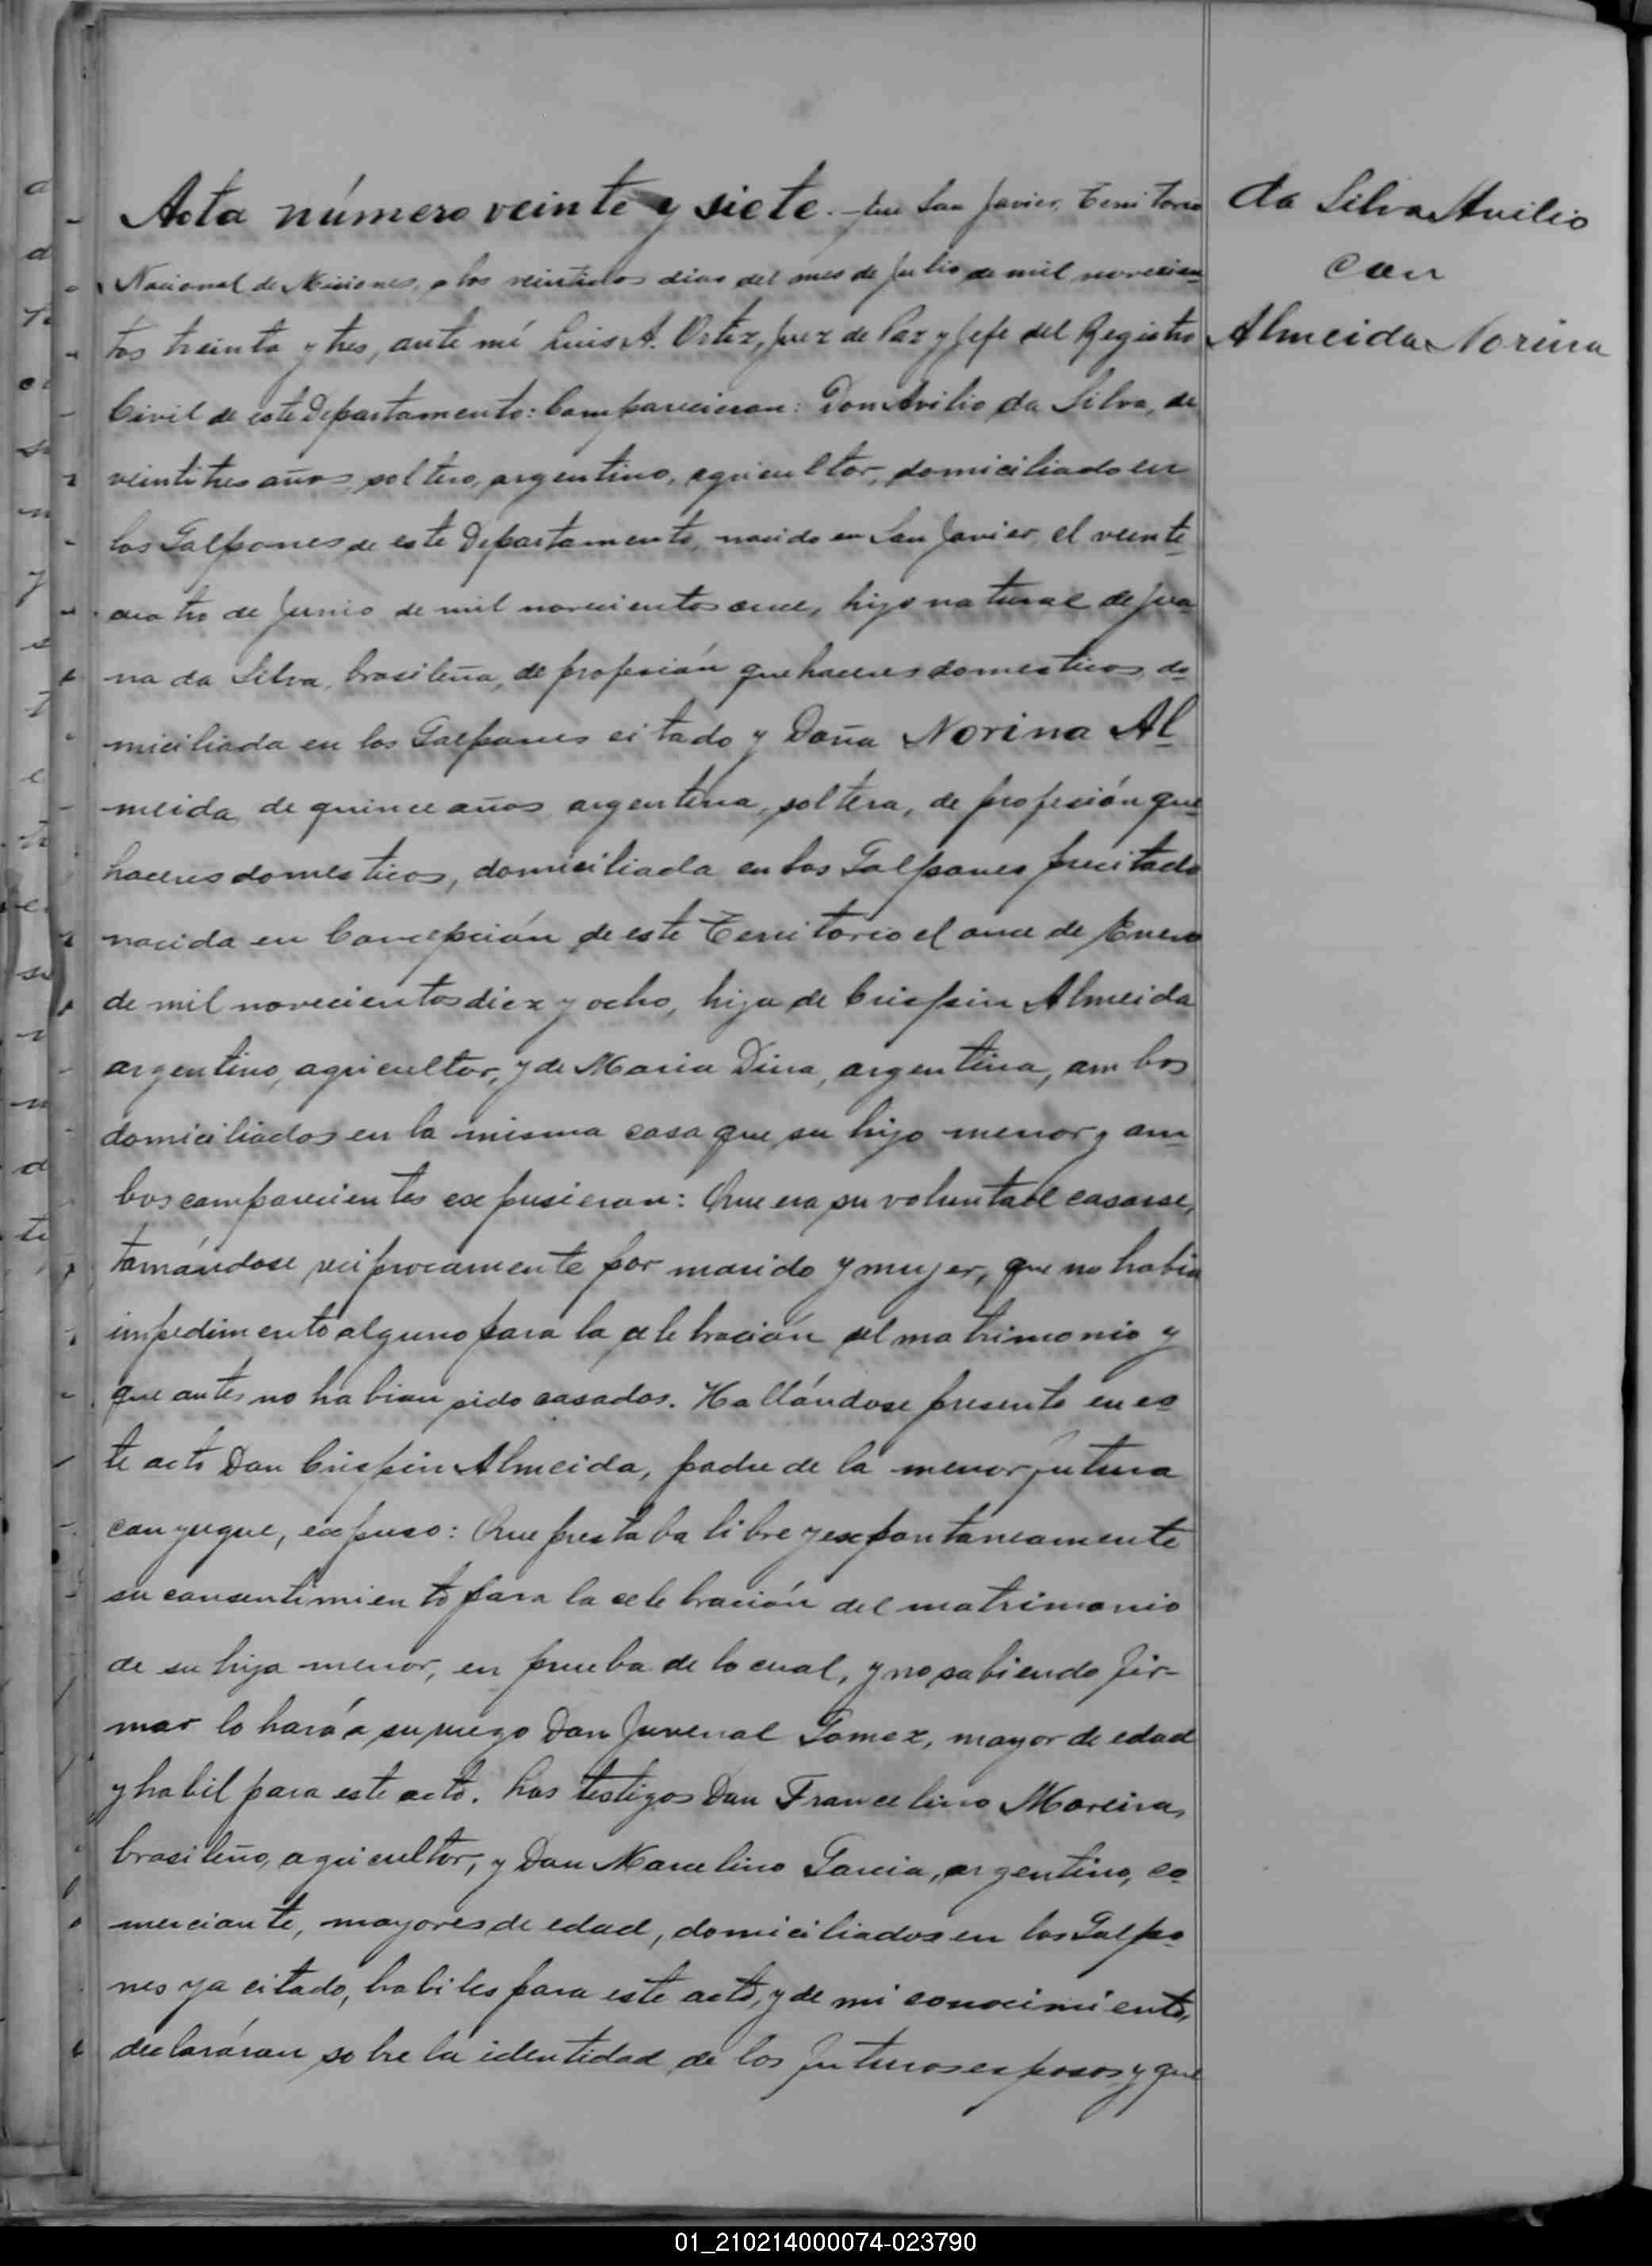 Acta número veinte y siete.- En San Javier, Territorio
Nacional de Misiones, a los veintidos dias del mes de Julio de mil novecien
tos treinta y tres, ante mí Luis A. Ortiz, Juez de Paz y Jefe del Registro
Civil de este Departamento: Comparecieron: Don Avilio da Silva, de
veintitres años, soltero, argentino, agricultor, domiciliado en
los Galpones de este Departamento, nacido en San Javier, el veinte
cuatro de Junio de mil novecientos once, hijo natural de Jua
na da Silva, brasileña, de profesión quehaceres domesticos, do
miciliada en los Galpones citado y Doña Norina Al
meida, de quince años, argentina, soltera, de profesión que
haceres domésticos, domiciliada en los Galpones precitado
nacida en Concepción de este Territorio el once de Enero
de mil novecientos diez y ocho, hija de Crispin Almeida
argentino, agricultor, y de Maria Dina, argentina, ambos
domiciliados en la misma casa que su hijo menor y am
bos comparecientes expusieron: Que era su voluntad casarse,
tomándose reciprocamente por marido y mujer, que no habia
impedimento alguno para la celebración del matrimonio y
que antes no habian sido casados. Hallándose presente en es
te acto Don Crispin Almeida, padre de la menor futura
conyugue, expuso: Que prestaba libre y expontaneamente
su consentimiento para la celebración del matrimonio
de su hija menor, en prueba de lo cual, y no sabiendo fir-
mar lo hará a su ruego Don Juvenal Gomez, mayor de edad
y habil para este acto. Los testigos Don Francelino Moreira,
brasileño, agricultor, y Don Marcelino Garcia, argentino, co
merciante, mayores de edad, domiciliados en los Galpo
nes ya citado, habiles para este acto, y de mi conocimiento,
declaráran sobre la identidad de los futuros esposos y que
da Silva Avilio
con
Almeida Norina
01_210214000074-023790